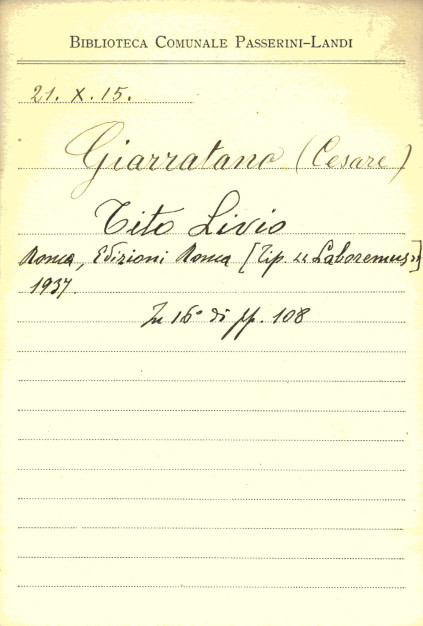 BIBLIOTECA COMUNALE PASSERINI-LANDI
21. X. 15.
Giarratano (Cesare)
Tito Livio
Roma, Edizioni Roma [Tip. « Laboremus »]
1937.
In 16° di pp. 108